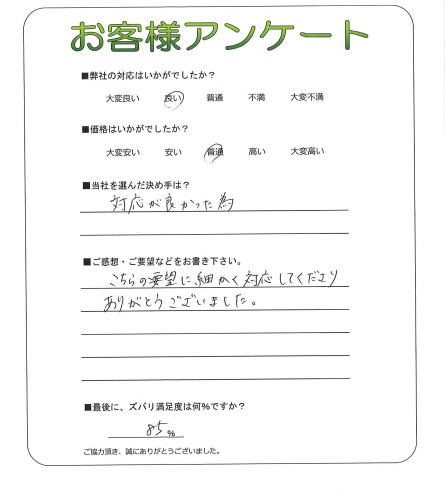 お客様アンケート
■弊社の対応はいかがでしたか?
大変良い 良い 普通 不満 大変不満
■価格はいかがでしたか?
大変安い 安い 普通 高い 大変高い
■当社を選んだ決め手は?
対応が良かった為
■ご感想・ご要望などをお書き下さい。
こちらの要望に細かく対応してくださり
ありがとうございました。
■最後に、ズバリ満足度は何%ですか?
85%
ご協力頂き、誠にありがとうございました。